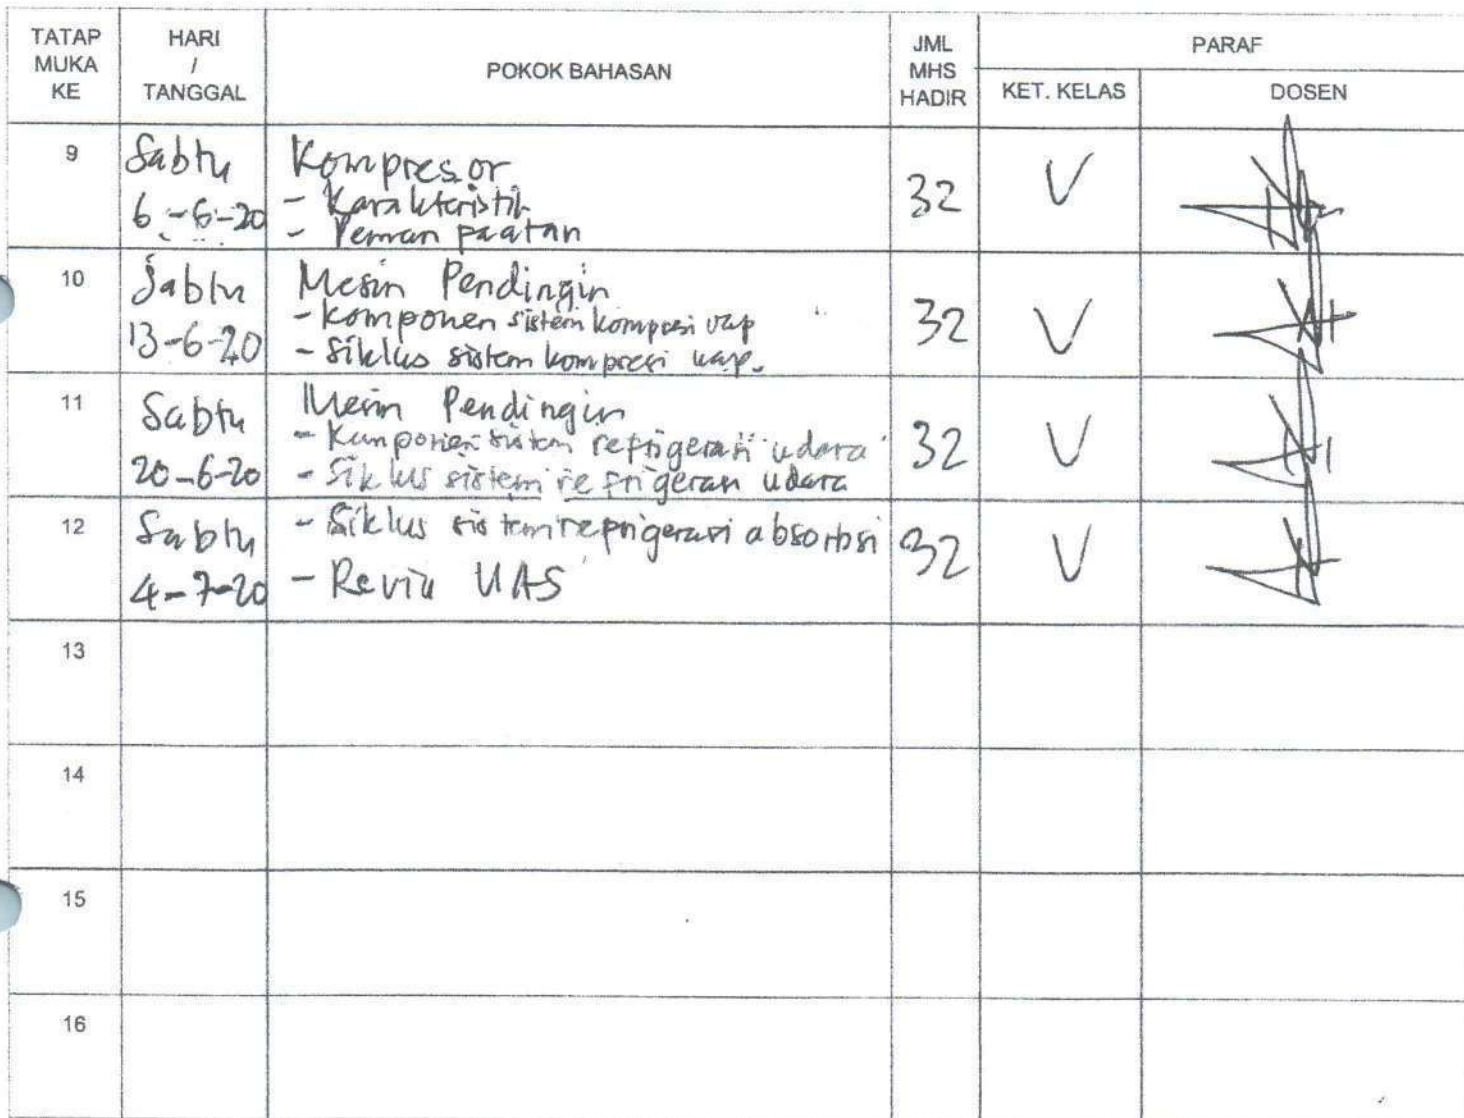 TATAP MUKA KE
HARI / TANGGAL
POKOK BAHASAN
JML MHS HADIR
PARAF
KET. KELAS
DOSEN
9
Sabtu
6-6-20
Kompresor
- Karakteristik
- Pemanpaatan
32
V
10
Sabtu
13-6-20
Mesin Pendingin
- Komponen sistem kompresi uap
- Siklus sistem kompresi uap.
32
V
11
Sabtu
20-6-20
Mesin Pendingin
- Komponen sistem refrigerasi udara
- Siklus sistem refrigeran udara
32
V
12
Sabtu
4-7-20
- Siklus sistem refrigerasi absorbsi
- Reviu UAS
32
V
13
14
15
16